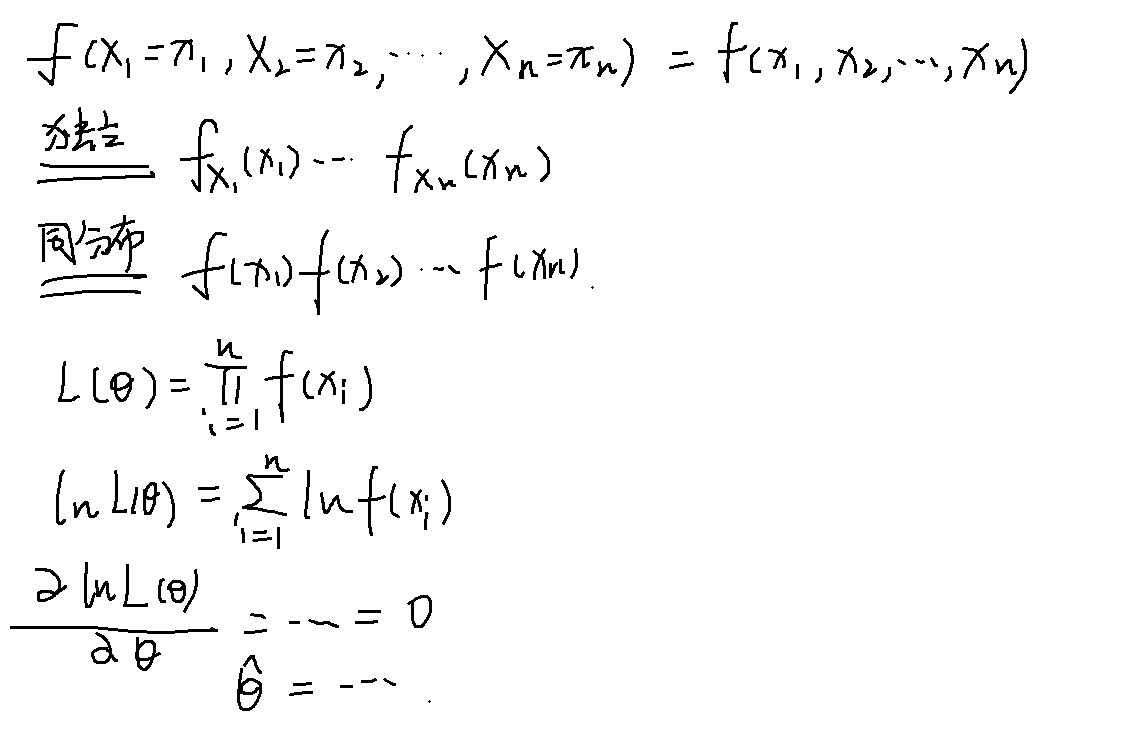 f(X₁=x₁, X₂=x₂, ……, Xₙ=xₙ) = f(x₁, x₂, …, xₙ)
独立 f_X₁(x₁) … f_Xₙ(xₙ)
同分布 f(x₁)f(x₂) … f(xₙ).
L(θ) = ∏_{i=1}^{n} f(xᵢ)
ln L(θ) = ∑_{i=1}^{n} ln f(xᵢ)
∂ ln L(θ) / ∂θ = … = 0
θ̂ = … .